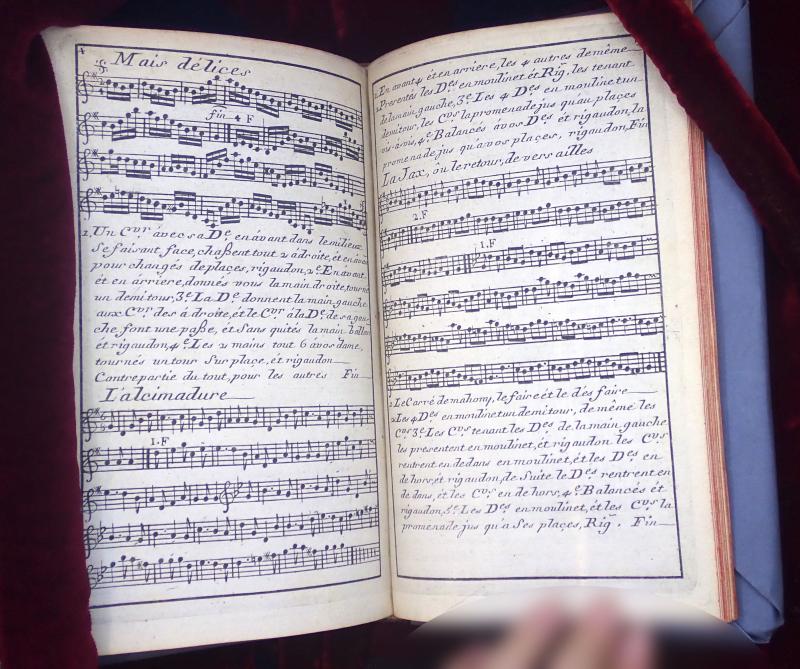 4
Mais délices
fin 4 F
1. Un Cvr. avec sa De. en avant dans le milieu
se faisant, face, chaßent tout 2 à droite, et en
pour changés de places, rigaudon, 2e. En avant
ét en árriere, donnés vous la main droite, tourne
un demi tour, 3e. La De. donnent la main gauche
aux Cvr. des á droite, ét le Cvr. à la De. de sa gau
che, font une paße, ét sans quités la main ballan
ét rigaudon, 4e. Les 2 mains tout 6 à vos dame,
tournés un tour sur place, ét rigaudon
Contre partie du tout, pour les autres Fin
L'alcimadure
1. F
1. En avant 4 ét en arriere, les 4 autres de même
2. Presentés les Des. en moulinet ét Rig, les tenant
de la main gauche, 3e. Les 4 Des. en moulinet un
demi tour, les Cvrs. la promenade jus qu'au places
vis-à-vis, 4e. Balancés à vos Des. ét rigaudon, la
promenade jus qu'à vos places, rigaudon, Fin
La Jax, oû le retour, de versailles
2. F
1. F
1. Le Carré de mahony, le faire ét le dés faire
2. Les 4 Des. en moulinet un demi tour, de même les
Cvs. 3e. Les Cvs. tenant les Des. de la main gauche
les presentent en moulinet, ét rigaudon les Cvs.
rentrent en dedans en moulinet, ét les Des. en
de hors, ét rigaudon, de Suite le Des. rentrent en
de dans, ét les Cvs. en de hors, 4e. Balancés ét
rigaudon, 5e. Les Des. en moulinet, ét les Cvs. la
promenade jus qu'a ses places, Rig. Fin